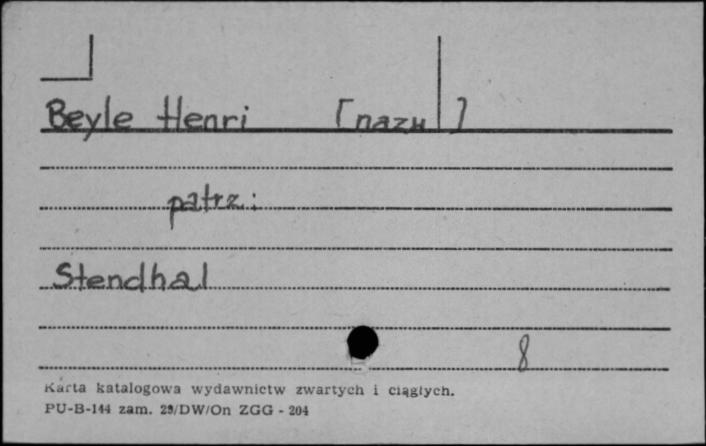 Beyle Henri [nazw]
patrz:
Stendhal
8
Karta katalogowa wydawnictw zwartych i ciągłych.
PU-B-144 zam. 29/DW/On ZGG - 204